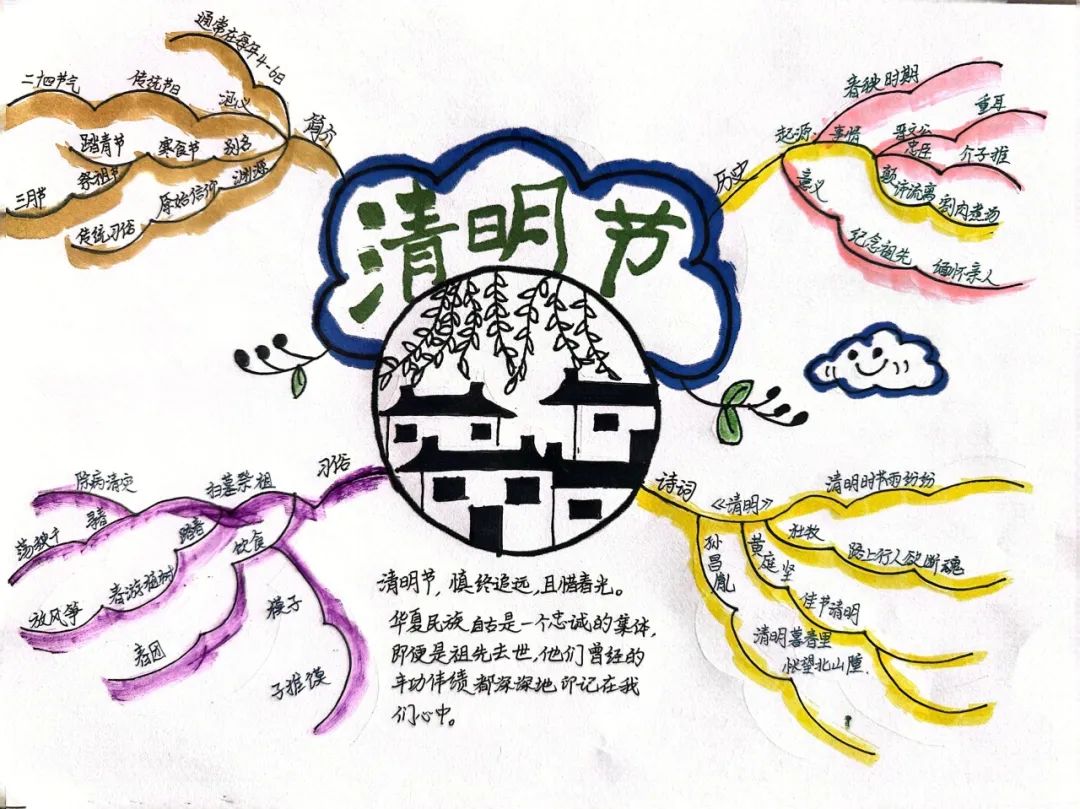 清明节
简介
通常在每年4-6日
二十四节气
传统节日
别名
寒食节
踏青节
祭祖节
三月节
渊源
原始信仰
传统习俗
历史
起源:事情
春秋时期
晋文公
重耳
忠臣
介子推
颠沛流离
割肉煮汤
意义
纪念祖先
缅怀亲人
习俗
扫墓祭祖
除病消灾
踏春
荡秋千
春游植树
放风筝
饮食
青团
子推馍
诗词
《清明》
杜牧
清明时节雨纷纷
路上行人欲断魂
黄庭坚
佳节清明
孙昌胤
清明暮春里
怅望北山陲.
清明节,慎终追远,且惜春光。
华夏民族自古是一个忠诚的集体,
即便是祖先去世,他们曾经的
丰功伟绩都深深地印记在我
们心中。